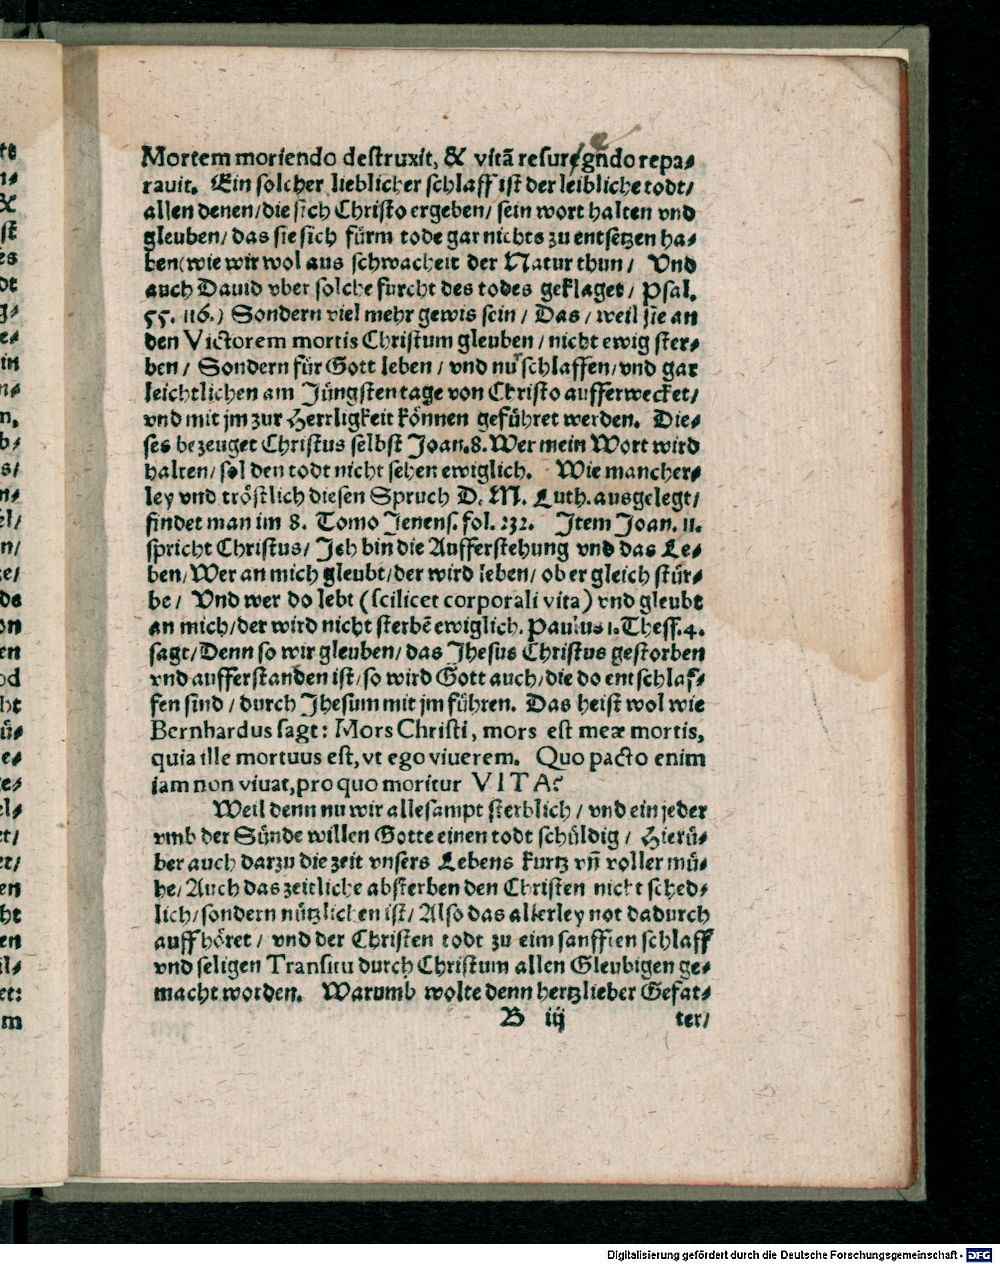 Mortem moriendo destruxit, & vitā resurgndo repa-
ravit. Ein solcher lieblicher schlaff ist der leibliche todt/
allen denen/die sich Christo ergeben/ sein wort halten vnd
gleuben/ das sie sich fürm tode gar nichts zu entsetzen ha-
ben(wie wir wol aus schwacheit der Natur thun/ Vnd
auch Dauid vber solche furcht des todes geklaget/ Psal.
55. 116.) Sondern viel mehr gewis sein/ Das/ weil sie an
den Victorem mortis Christum gleuben/ nicht ewig ster-
ben/ Sondern für Gott leben/ vnd nu schlaffen/vnd gar
leichtlichen am Jüngsten tage von Christo aufferwecket/
vnd mit jm zur Herrligkeit können geführet werden. Die-
ses bezeuget Christus selbst Joan.8. Wer mein Wort wird
halten/ sol den todt nicht sehen ewiglich. Wie mancher-
ley vnd tröstlich diesen Spruch D. M. Luth. ausgelegt/
findet man im 8. Tomo Jenens. fol. 232. Item Joan. 11.
spricht Christus/ Ich bin die Aufferstehung vnd das Le-
ben/Wer an mich gleubt/der wird leben/ ob er gleich stür-
be/ Vnd wer do lebt (scilicet corporali vita) vnd gleubt
an mich/der wird nicht sterbē ewiglich. Paulus 1. Thess.4.
sagt/Denn so wir gleuben/ das Jhesus Christus gestorben
vnd aufferstanden ist/so wird Gott auch/die do entschlaf-
fen sind/durch Jhesum mit jm führen. Das heist wol wie
Bernhardus sagt: Mors Christi, mors est meæ mortis,
quia ille mortuus est, vt ego viuerem. Quo pacto enim
iam non viuat, pro quo moritur VITA?
Weil denn nu wir allesampt sterblich/ vnd ein jeder
vmb der Sünde willen Gotte einen todt schüldig/ Hierü-
ber auch darzu die zeit vnsers Lebens kurtz vn̄ voller mü-
he/Auch das zeitliche absterben den Christen nicht sched-
lich/sondern nützlichen ist/ Also das allerley not dadurch
auffhöret/ vnd der Christen todt zu eim sanfften schlaff
vnd seligen Transitu durch Christum allen Gleubigen ge-
macht worden. Warumb wolte denn hertzlieber Gefat-
B iij ter/
Digitalisierung gefördert durch die Deutsche Forschungsgemeinschaft - DFG